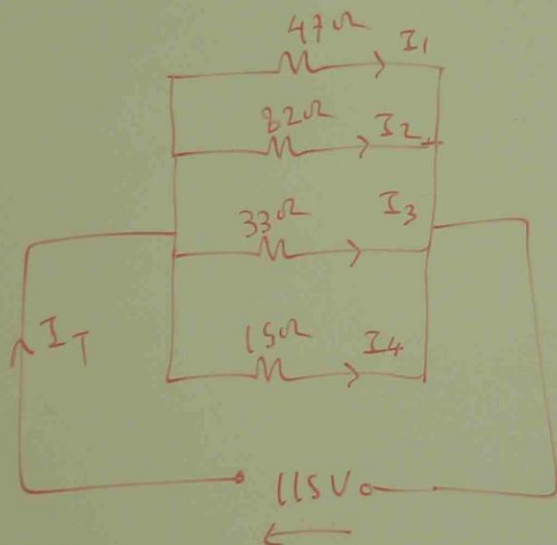 47Ω I1
82Ω I2
33Ω I3
15Ω I4
IT
115V